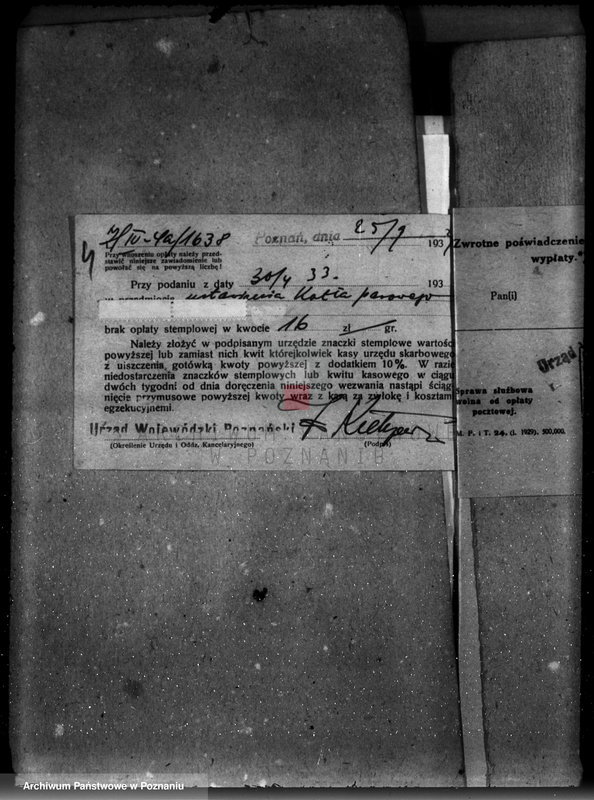 Z/IV-4a/1638
Poznań, dnia 25/9 193
Przy wnoszeniu opłaty należy przed-
stawić niniejsze zawiadomienie lub
powołać się na powyższą liczbę!
Przy podaniu z daty 30/4 33. 193
w przedmiocie ustawienia Kotła parowego
brak opłaty stemplowej w kwocie 16 zł gr.
Należy złożyć w podpisanym urzędzie znaczki stemplowe wartości
powyższej lub zamiast nich kwit którejkolwiek kasy urzędu skarbowego
z uiszczenia gotówką kwoty powyższej z dodatkiem 10%. W razie
niedostarczenia znaczków stemplowych lub kwitu kasowego w ciągu
dwóch tygodni od dnia doręczenia niniejszego wezwania nastąpi ściąg
nięcie przymusowe powyższej kwoty wraz z karą za zwłokę i kosztam
egzekucyjnemi.
Urząd Wojewódzki Poznański
(Określenie Urzędu i Oddz. Kancelaryjnego) (Podpis)
POZNANIU
Zwrotne poświadczenie
wypłaty.*
Pan(i)
Urząd
Sprawa służbowa
wolna od opłaty
pocztowej.
M. P. i T. 24. (I. 1929). 500,000.
Archiwum Państwowe w Poznaniu